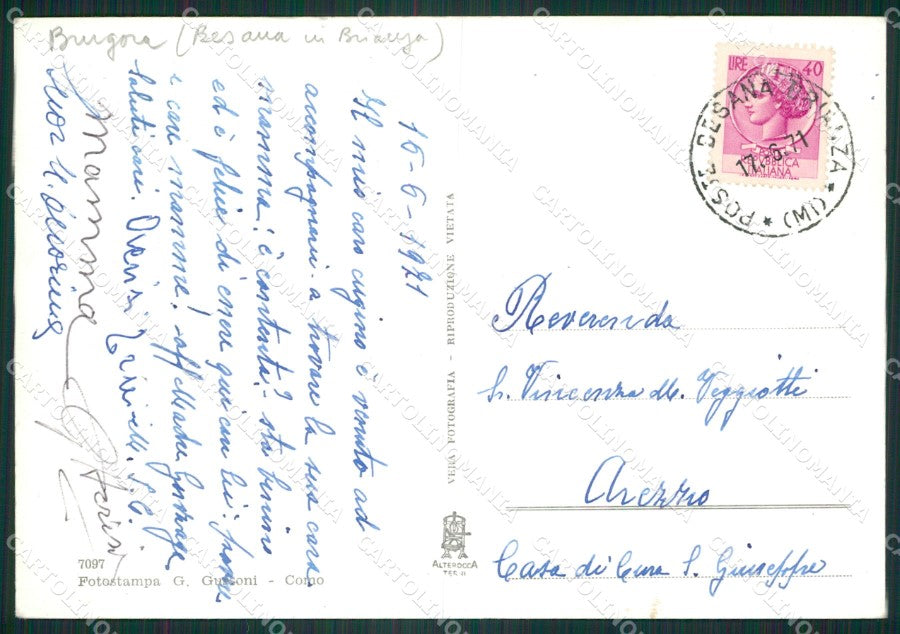 Brugora (Besana in Brianza)
16-6-1971
Il mio caro cugino è venuto ad
accompagnarmi a trovare la sua cara
mamma: è contenta? sta benino
ed è felice di essere qui con lei.
e care mamme!
saluti cari.
Mamma
Suor M.
7097
Fotostampa G. Gussoni - Como
VERA FOTOGRAFIA - RIPRODUZIONE VIETATA
ALTEROCCA
TERNI
LIRE 40
REPUBBLICA
ITALIANA
POSTE BESANA BRIANZA * (MI) *
17.6.71
Reverenda
Sr. Vincenza M. Veggiotti
Arezzo
Casa di Cura S. Giuseppe
CARTOLINOMANIA